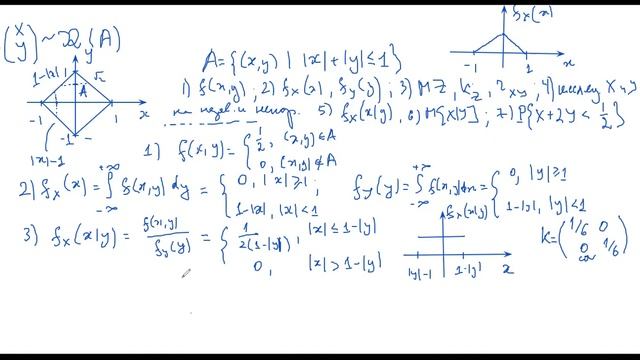 (X Y) ~ R {A}
A = {(x,y) | |x|+|y| ≤ 1}
f_X(x)
-1 1 x
y
1-|x| √2
A
-1 1 x
-1
|x|-1
1) f(x,y); 2) f_X(x), f_Y(y); 3) MZ, K_Z, r_XY, 4) X и Y
на незав. и некор. 5) f_X(x|y), 6) M[X|Y]; 7) P{X+2Y < 1/2}
1) f(x,y) = { 1/2, (x,y)∈A
0, (x,y)∉A
2) f_X(x) = ∫_{-∞}^{+∞} f(x,y) dy = { 0, |x| ≥ 1; 1-|x|, |x| < 1
f_Y(y) = ∫_{-∞}^{+∞} f(x,y)dx = { 0, |y| ≥ 1; 1-|y|, |y| < 1
3) f_X(x|y) = f(x,y) / f_Y(y) = { 1/2(1-|y|), |x| ≤ 1-|y|
0, |x| > 1-|y|
f_X(x|y)
|y|-1 1-|y| x
K = (1/6 0
0 1/6)
cov